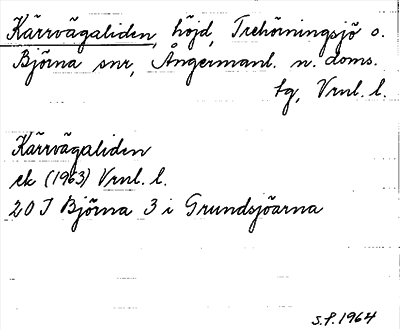 Kärrvägaliden, höjd, Trehörningsjö o.
Björna snr, Ångermanl. n. doms.
tg, Vrnl. l.
Kärrvägaliden
ek (1963) Vrnl. l.
20 J Björna 3 i Grundsjöarna
S.P. 1964